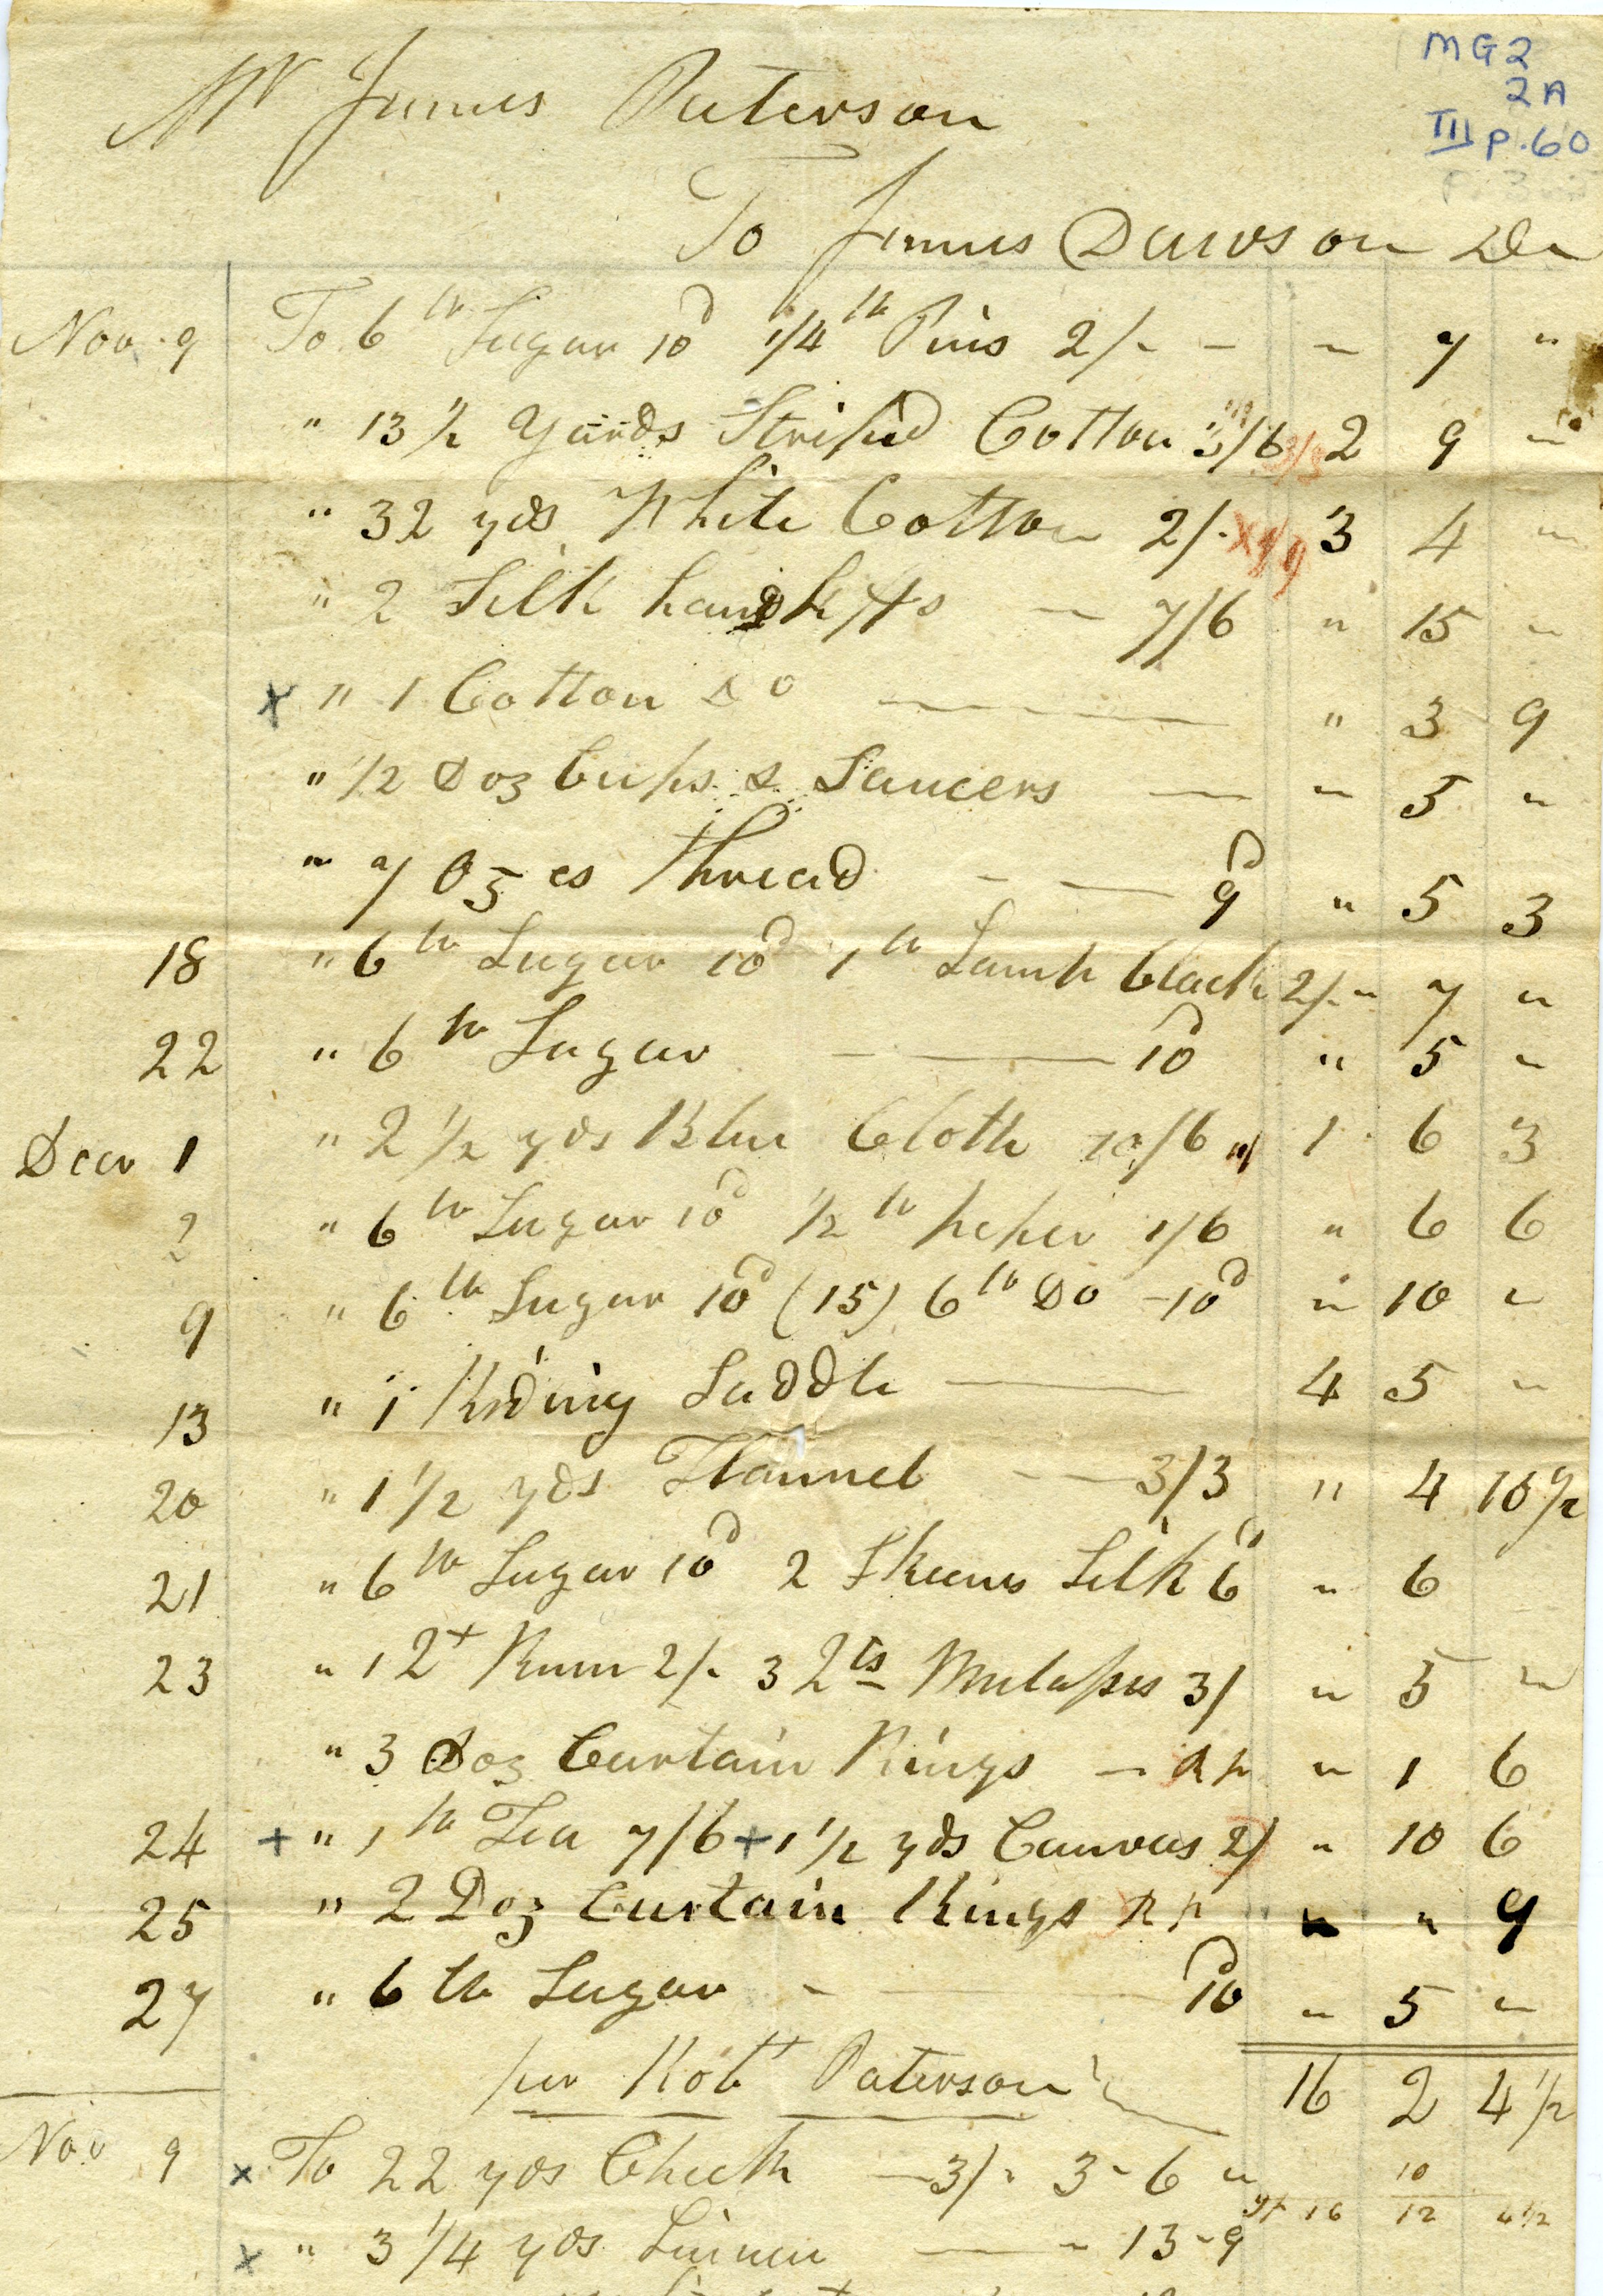 MG2
2A
III p.60
Mr James Paterson
To James Dawson Dr
Nov. 9 To 6 lb Sugar 10d 1/4 lb Pins 2/- - " 7 "
" 13 1/2 Yards Striped Cotton 3/6 3/3 2 9 "
" 32 yds White Cotton 2/- x 1/9 3 4 "
" 2 Silk handkffs - 7/6 " 15 "
x " 1 Cotton Do " 3 9
" 1/2 Doz Cups & Saucers - " 5 "
" 7 Ozes thread - - 9d " 5 3
18 " 6 lb Sugar 10d 1 lb Lamp black 2/- " 7 "
22 " 6 lb Sugar - 10d " 5 "
Decr 1 " 2 1/2 yds Blue Cloth 10/6 1 6 3
2 " 6 lb Sugar 10d 1/2 lb peper 1/6 " 6 6
9 " 6 lb Sugar 10d (15) 6 lb Do - 10d " 10 "
13 " 1 Riding Saddle - 4 5 "
20 " 1 1/2 yds Flannel - 3/3 " 4 10 1/2
21 " 6 lb Sugar 10d 2 Skeens Silk 6d " 6
23 " 1 Qt Rum 2/- 3 Qts Melasses 3/ " 5 "
" 3 Doz Curtain Rings - " 1 6
24 + " 1 lb Tea 7/6 + 1 1/2 yds Canvas 2/ " 10 6
25 " 2 Doz Curtain Rings " " 9
27 " 6 lb Sugar - 10d " 5 "
16 2 4 1/2
per Robt Paterson
Nov 9 x To 22 yds Check - 3/- 3 - 6 "
10
16 12 4 1/2
x " 3 1/4 yds Linnen - " 13 - 9